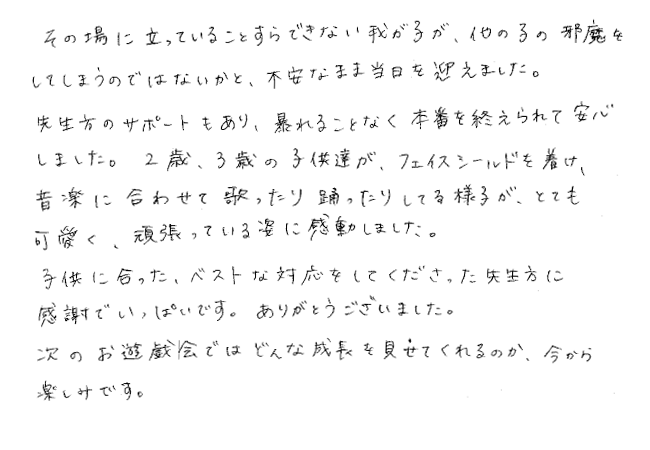 その場に立っていることすらできない我が子が、他の子の邪魔を
してしまうのではないかと、不安なまま当日を迎えました。
先生方のサポートもあり、暴れることなく本番を終えられて安心
しました。2歳、3歳の子供達が、フェイスシールドを着け、
音楽に合わせて歌ったり踊ったりしてる様子が、とても
可愛く、頑張っている姿に感動しました。
子供に合った、ベストな対応をしてくださった先生方に
感謝でいっぱいです。ありがとうございました。
次のお遊戯会ではどんな成長を見せてくれるのか、今から
楽しみです。